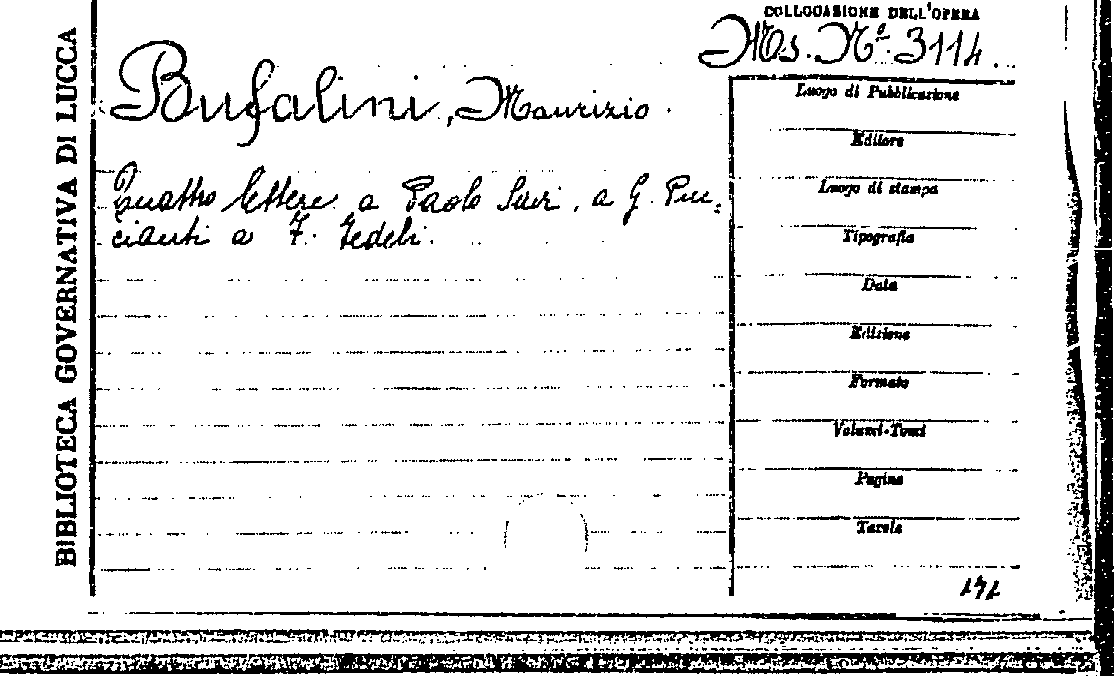 BIBLIOTECA GOVERNATIVA DI LUCCA
COLLOCASIONE DELL'OPERA
Ms. Nº. 3114.
Bufalini, Maurizio.
Quattro lettere a Paolo Savi, a G. Puc:
cianti a F. Fedeli.
Luogo di Pubblicazione
Editore
Luogo di stampa
Tipografia
Data
Edizione
Formato
Volumi-Tomi
Pagine
Tavole